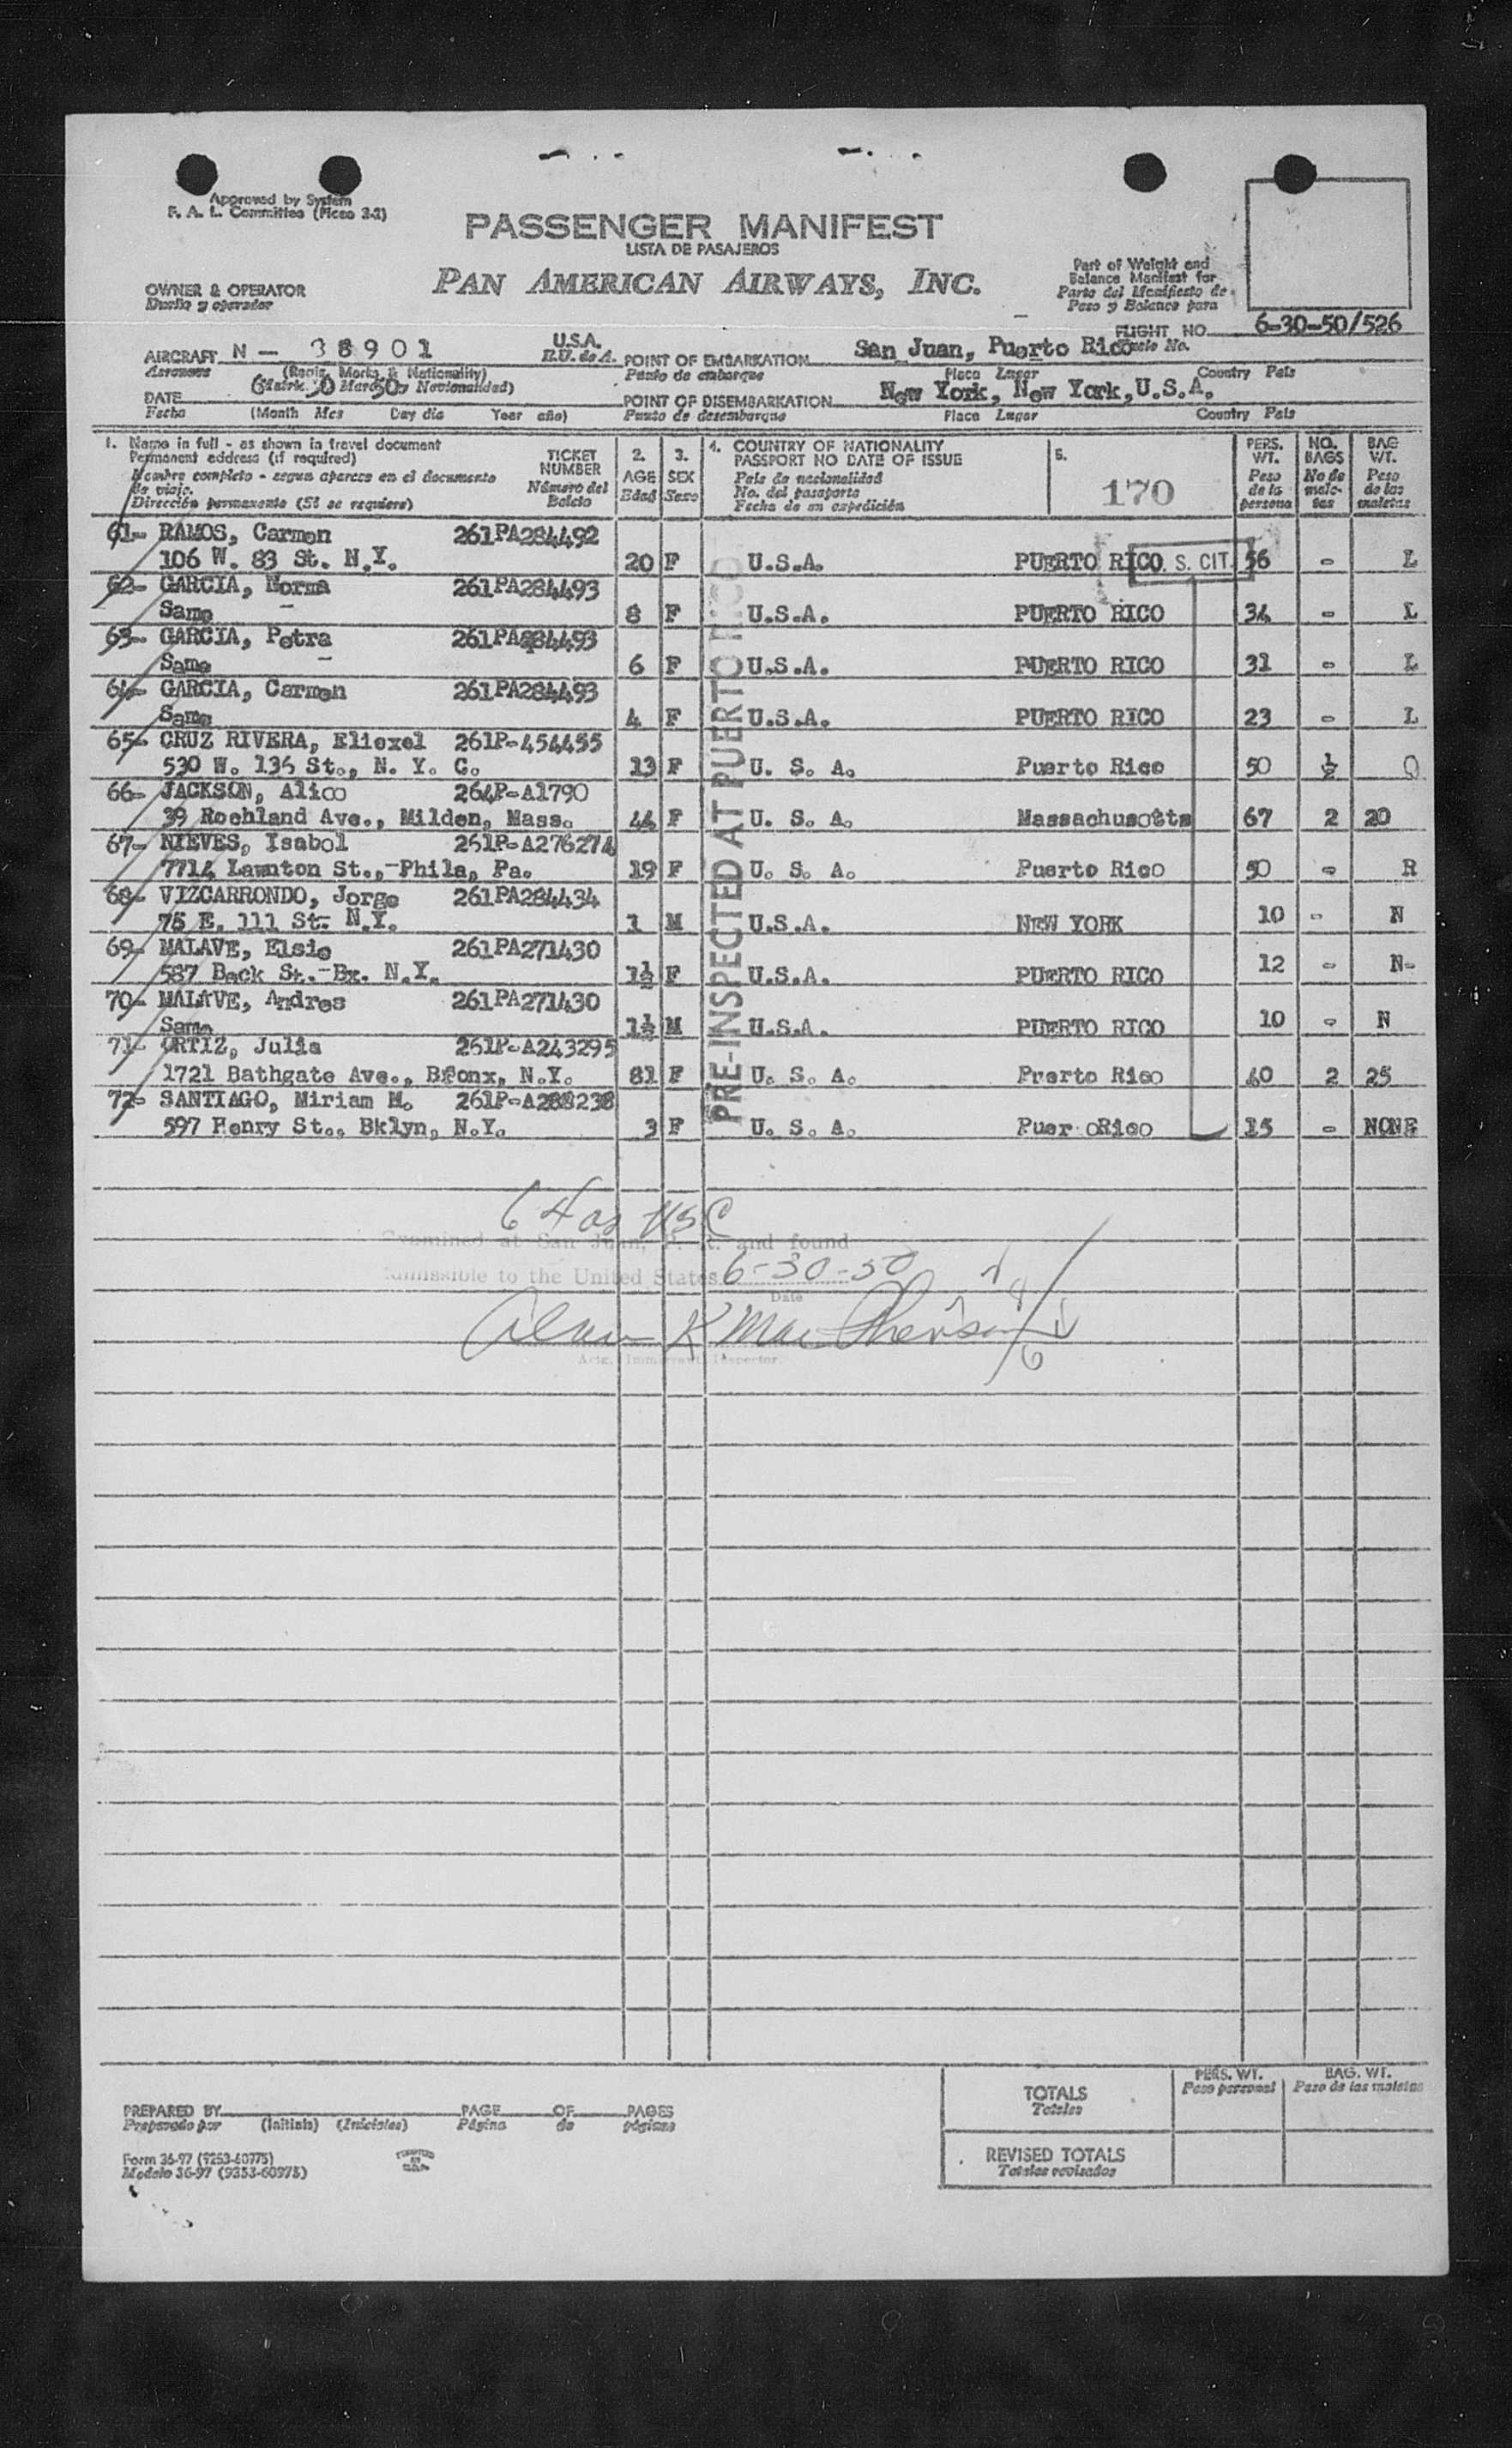 Approved by System
F. A. L. Committee (Mcso 3-2)
PASSENGER MANIFEST
LISTA DE PASAJEROS
PAN AMERICAN AIRWAYS, INC.
Part of Weight and
Balance Manifest for
Parte del Manifiesto de
Peso y Balance para
OWNER & OPERATOR
Dueño y operador
FLIGHT NO. 6-30-50/526
Vuelo No.
AIRCRAFT N - 38901 U.S.A.
Aeronave (Regis. Marks & Nationality) E.U. de A.
POINT OF EMBARKATION San Juan, Puerto Rico
Punto de embarque Place Lugar Country País
DATE 6 30 50
Fecha (Month Mes Day día Year año)
POINT OF DISEMBARKATION New York, New York, U.S.A.
Punto de desembarque Place Lugar Country País
1. Name in full - as shown in travel document
Permanent address (if required)
Nombre completo - segun aparece en el documento
de viaje.
Dirección permanente (Si se requiere)
TICKET
NUMBER
Número del
Boleto
2.
AGE
Edad
3.
SEX
Sexo
4. COUNTRY OF NATIONALITY
PASSPORT NO DATE OF ISSUE
País de nacionalidad
No. del pasaporte
Fecha de su expedición
5.
170
PERS.
WT.
Peso
de la
persona
NO.
BAGS
No de
male-
tas
BAG
WT.
Peso
de las
maletas
61- RAMOS, Carmen 261PA284492
106 W. 83 St. N.Y. 20 F U.S.A. PUERTO RICO S. CIT. 56 - L
62- GARCIA, Norma 261PA284493
Same - 8 F U.S.A. PUERTO RICO 34 - L
63- GARCIA, Petra 261PA284493
Same - 6 F U.S.A. PUERTO RICO 31 - L
64- GARCIA, Carmen 261PA284493
Same 4 F U.S.A. PUERTO RICO 23 - L
65- CRUZ RIVERA, Eliexel 261P-454455
530 W. 136 St., N. Y. C. 13 F U. S. A. Puerto Rico 50 ½ O
66- JACKSON, Alice 264P-A1790
39 Rochland Ave., Milden, Mass. 44 F U. S. A. Massachusetts 67 2 20
67- NIEVES, Isabel 261P-A276274
7714 Lawnton St.,-Phila, Pa. 19 F U. S. A. Puerto Rico 50 - R
68- VIZCARRONDO, Jorge 261PA284434
75 E. 111 St- N.Y. 1 M U.S.A. NEW YORK 10 - N
69- MALAVE, Elsie 261PA271430
587 Beck St.-Bx. N.Y. 1½ F U.S.A. PUERTO RICO 12 - N-
70- MALAVE, Andres 261PA271430
Same 1½ M U.S.A. PUERTO RICO 10 - N
71- ORTIZ, Julia 261P-A243295
1721 Bathgate Ave., Bronx, N.Y. 81 F U. S. A. Prerto Rico 40 2 25
72- SANTIAGO, Miriam M. 261P-A288238
597 Henry St., Bklyn, N.Y. 3 F U. S. A. Puer oRico 15 - NONE
PRE-INSPECTED AT PUERTO RICO
64 as USC
Examined at San Juan, P. R. and found
admissible to the United States 6-30-50
Date
Alan K MacPherson
Actg. Immigrant Inspector
PREPARED BY PAGE OF PAGES
Preparado por (Initials) (Iniciales) Página de páginas
Form 36-97 (9353-60975)
Modelo 36-97 (9353-60975)
PERS. WT.
Peso personal
BAG. WT.
Peso de las maletas
TOTALS
Totales
REVISED TOTALS
Totales revisados